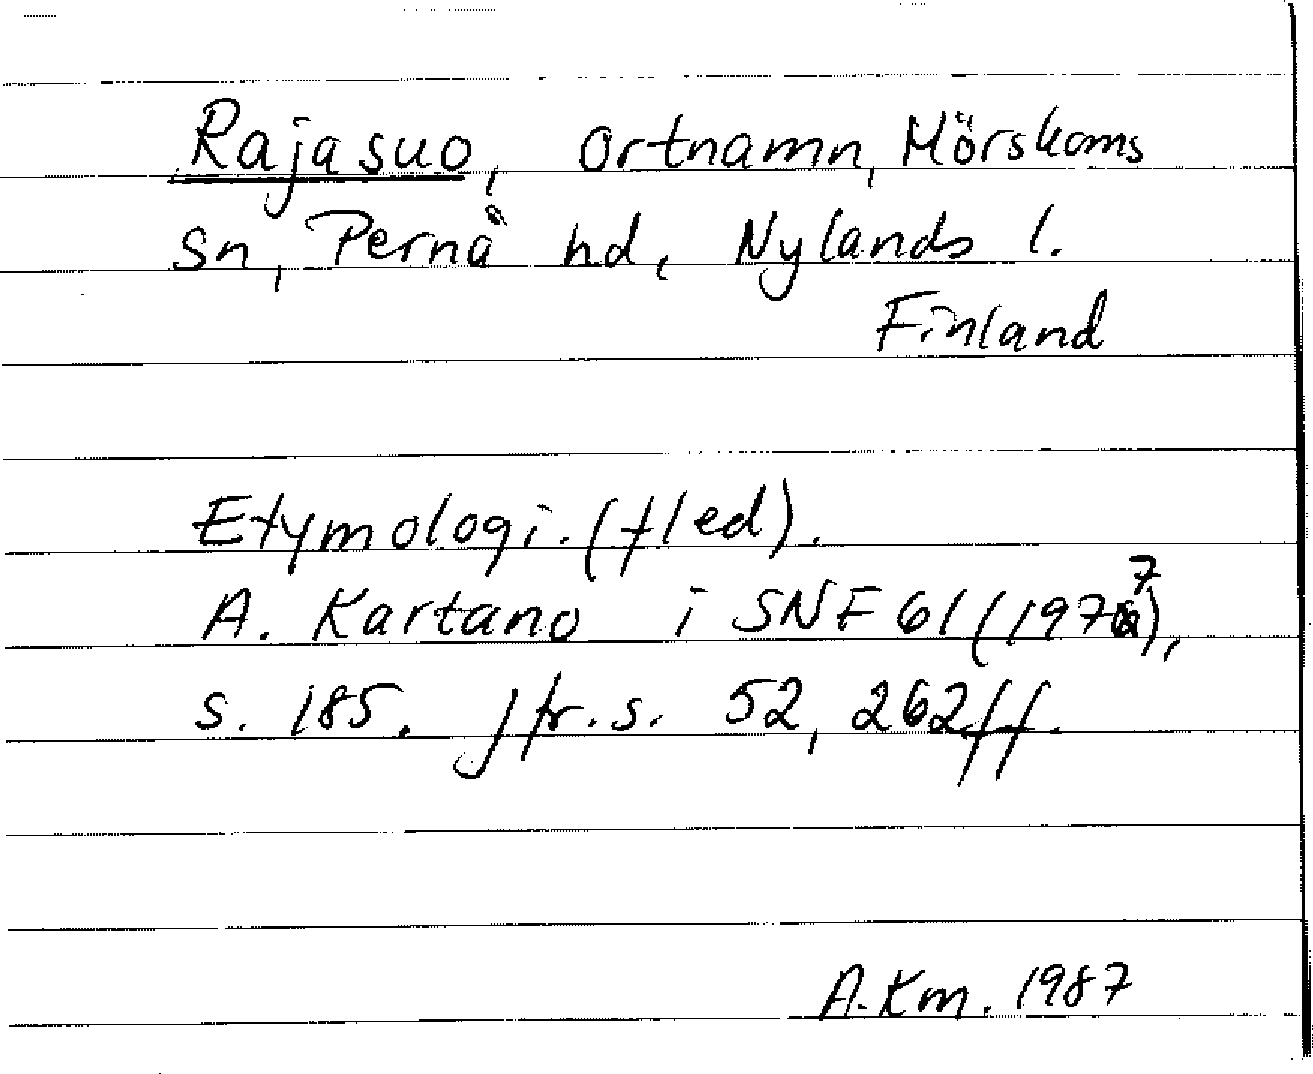 Rajasuo, ortnamn, Mörskoms
sn, Pernå hd, Nylands l.
Finland
Etymologi. (fled).
A. Kartano i SNF 61 (1977),
s. 185. Jfr. s. 52, 262ff.
A. Km. 1987